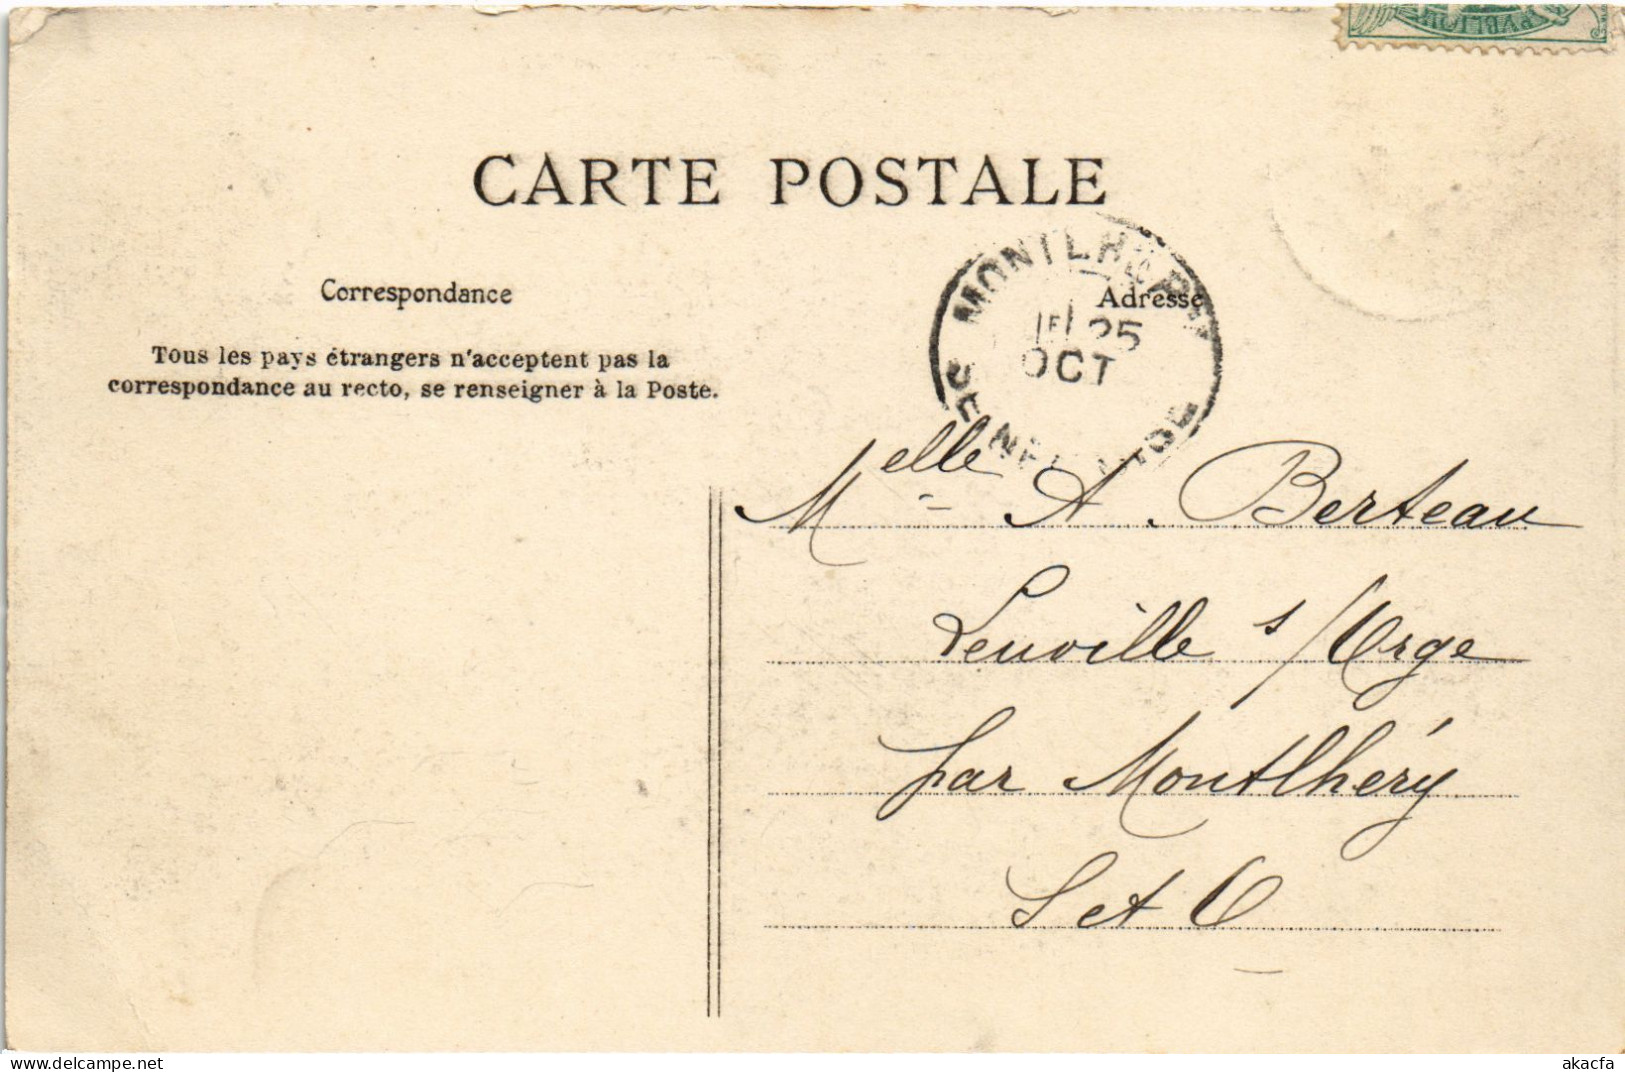 CARTE POSTALE
Correspondance
Adresse
Tous les pays étrangers n'acceptent pas la
correspondance au recto, se renseigner à la Poste.
MONTLHÉRY
25
OCT
SEINE
OISE
Melle A. Berteau
Leuville s/Orge
par Montlhéry
S et O
akacfa